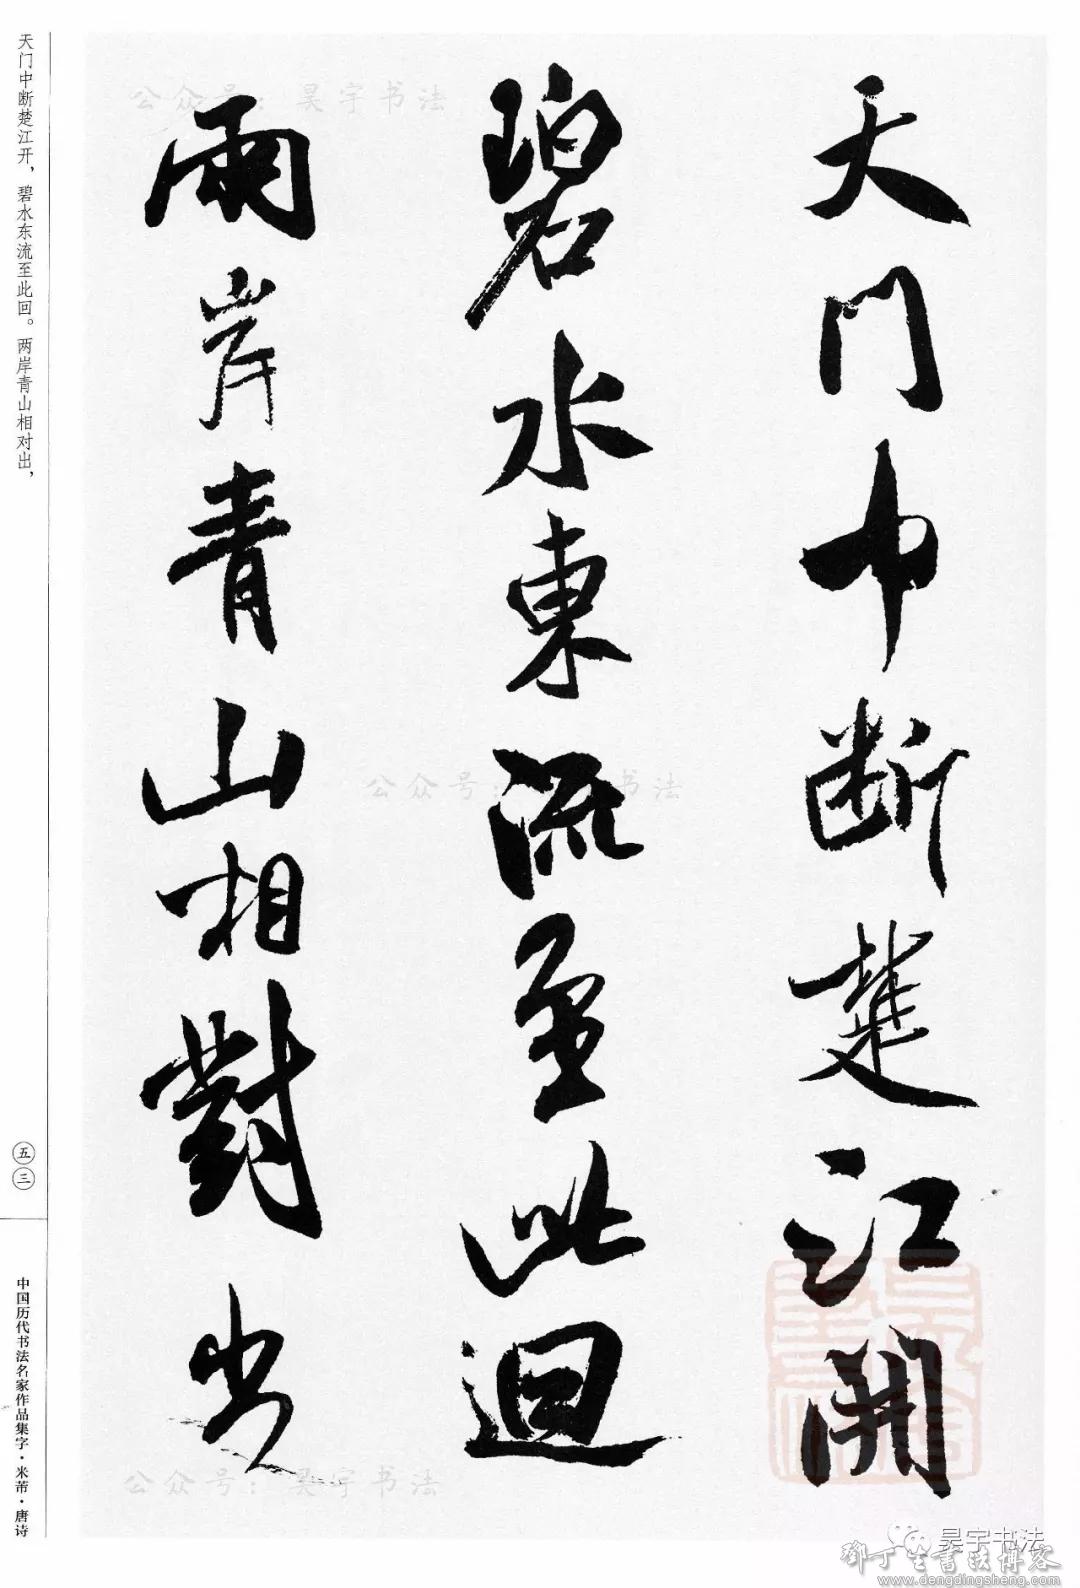 天門中断楚江開
碧水東流至此迴
兩岸青山相對出
天门中断楚江开，碧水东流至此回。两岸青山相对出，
五三
中国历代书法名家作品集字·米芾·唐诗
公众号：昊宇书法
公众号：书法
公众号：昊宇书法
昊宇书法
鄧丁生書法博客
www.dengdingsheng.com